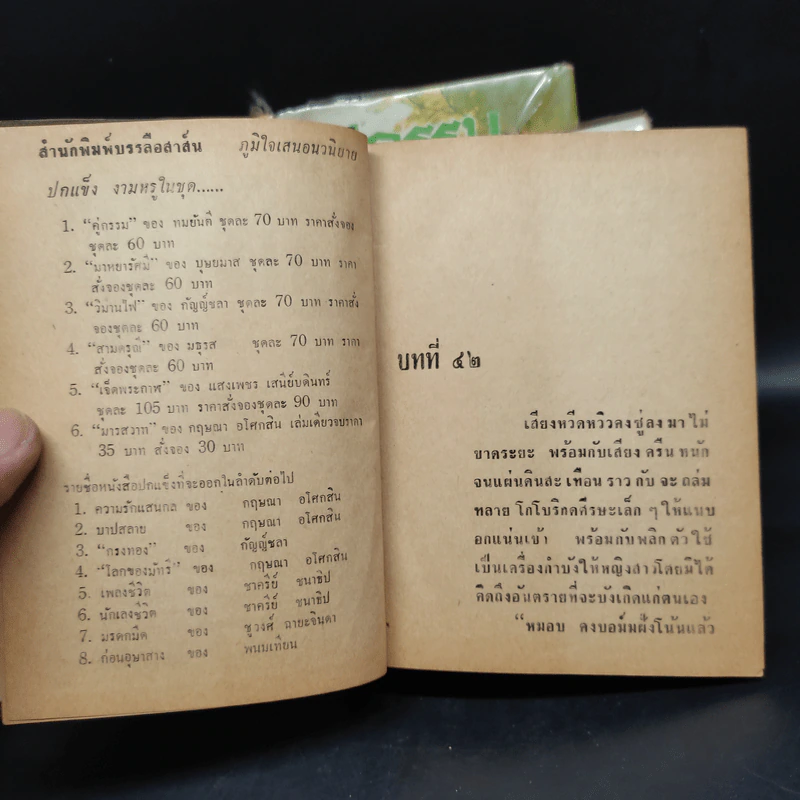 กรรม
สำนักพิมพ์บรรลือสาส์น ภูมิใจเสนอนวนิยาย
ปกแข็ง งามหรูในชุด......
1. "คู่กรรม" ของ ทมยันตี ชุดละ 70 บาท ราคาสั่งจอง
ชุดละ 60 บาท
2. "มาหยารัศมี" ของ บุษยมาส ชุดละ 70 บาท ราคา
สั่งจองชุดละ 60 บาท
3. "วิมานไฟ" ของ กัญญ์ชลา ชุดละ 70 บาท ราคาสั่ง
จองชุดละ 60 บาท
4. "สามดรุณี" ของ มธุรส ชุดละ 70 บาท ราคา
สั่งจองชุดละ 60 บาท
5. "เจ็ดพระกาฬ" ของ แสงเพชร เสนีย์บดินทร์
ชุดละ 105 บาท ราคาสั่งจองชุดละ 90 บาท
6. "มารสวาท" ของ กฤษณา อโศกสิน เล่มเดียวจบราคา
35 บาท สั่งจอง 30 บาท
รายชื่อหนังสือปกแข็งที่จะออกในลำดับต่อไป
1. ความรักแสนกล ของ กฤษณา อโศกสิน
2. บาปสลาย ของ กฤษณา อโศกสิน
3. "กรงทอง" ของ กัญญ์ชลา
4. "โลกของมัทรี" ของ กฤษณา อโศกสิน
5. เพลงชีวิต ของ ชาครีย์ ชนาธิป
6. นักเลงชีวิต ของ ชาครีย์ ชนาธิป
7. มรดกมืด ของ ชูวงศ์ ฉายะจินดา
8. ก่อนอุษาสาง ของ พนมเทียน
บทที่ ๔๒
เสียงหวีดหวิวคงขู่ลงมาไม่
ขาดระยะ พร้อมกับเสียงครืนหนัก
จนแผ่นดินสะเทือนราวกับจะถล่ม
ทลาย โกโบริกดศีรษะเล็ก ๆ ให้แนบ
อกแน่นเข้า พร้อมกับพลิกตัวใช้
เป็นเครื่องกำบังให้หญิงสาวโดยมิได้
คิดถึงอันตรายที่จะบังเกิดแก่ตนเอง
"หมอบ คงบอม์มฝั่งโน้นแล้ว